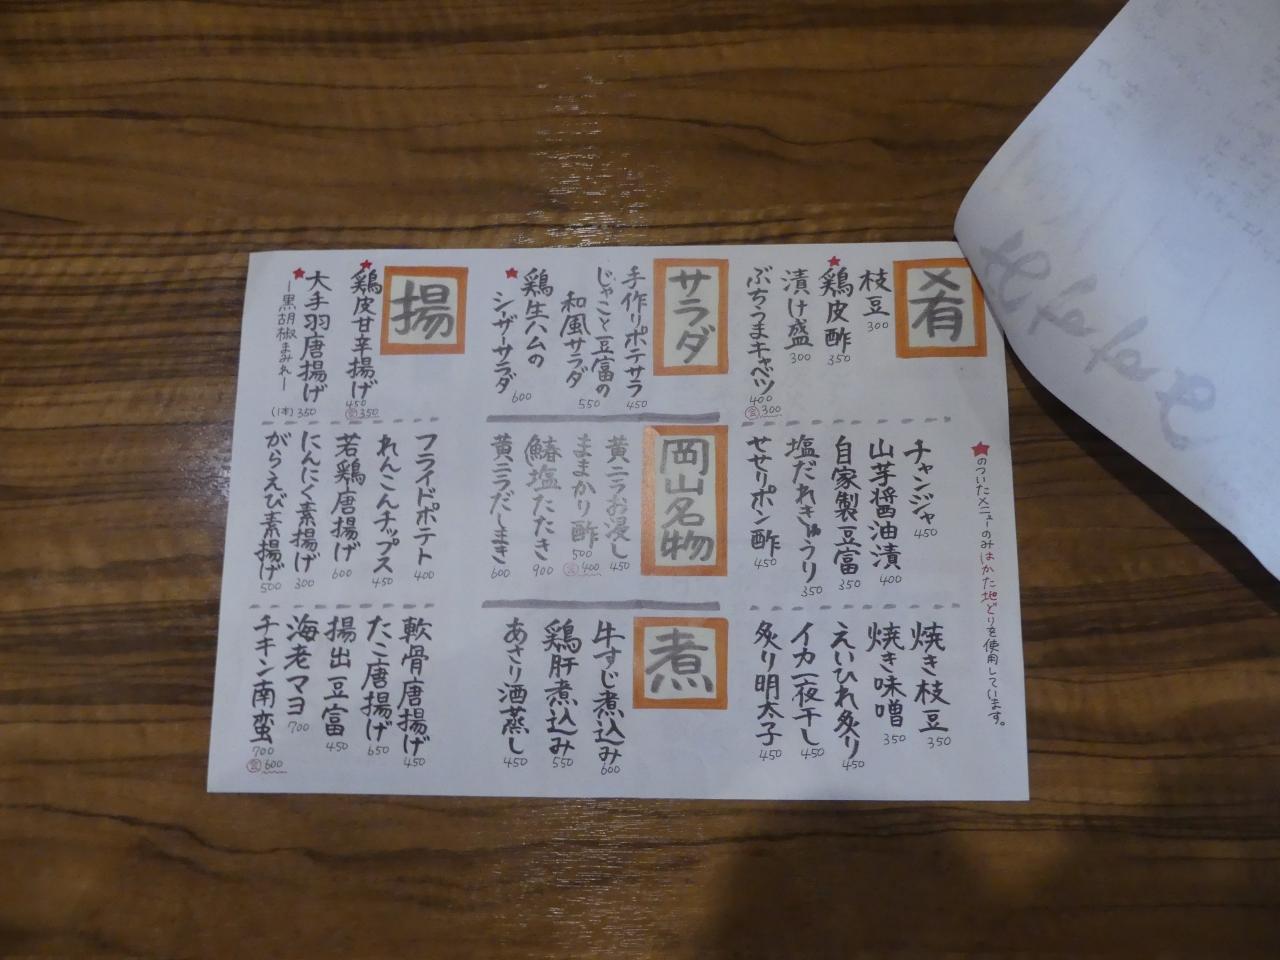 肴
枝豆 300
★鶏皮酢 350
漬け盛 300
ぶちうまキャベツ 400
300
★のついたメニューのみはかた地どりを使用しています。
チャンジャ 450
山芋醤油漬 400
自家製豆富 350
塩だれきゅうり 350
せせりポン酢 450
焼き枝豆 350
焼き味噌 350
えいひれ炙り 450
イカ一夜干し 450
炙り明太子 450
サラダ
手作りポテサラ 450
じゃこと豆富の
和風サラダ 550
★鶏生ハムの
シーザーサラダ 600
岡山名物
黄ニラお浸し 450
ままかり酢 500
400
鰆塩たたき 900
黄ニラだしまき 600
煮
牛すじ煮込み 600
鶏肝煮込み 550
あさり酒蒸し 450
揚
★鶏皮甘辛揚げ 450
350
★大手羽唐揚げ (1本) 350
ー黒胡椒まみれー
フライドポテト 400
れんこんチップス 450
若鶏唐揚げ 600
にんにく素揚げ 300
がらえび素揚げ 500
軟骨唐揚げ 450
たこ唐揚げ 650
揚出豆富 450
海老マヨ 700
チキン南蛮 700
600